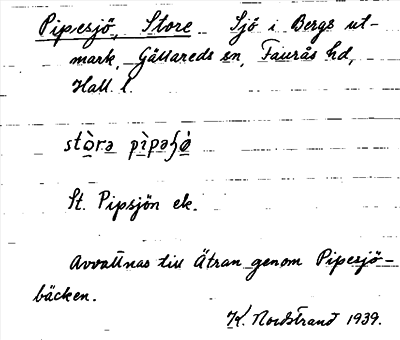 Pipesjö, Store Sjö i Bergs ut-
mark, Gällareds sn, Faurås hd,
Hall. l.
stòra pìpaʃö̀
St. Pipsjön ek.
Avvattnas till Ätran genom Pipesjö-
bäcken.
K. Nordstrand 1939.